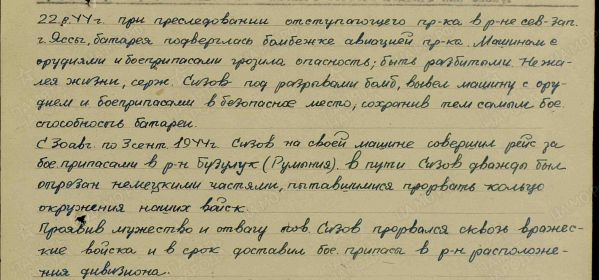 22.8.44 г. при преследовании отступающего пр-ка в р-не сев-зап.
г. Яссы, батарея подверглась бомбежке авиацией пр-ка. Машинам с
орудиями и боеприпасами грозила опасность; быть разбитыми. Не жа-
лея жизни, серж. Сизов под разрывами бомб, вывел машину с ору-
дием и боеприпасами в безопасное место, сохранив тем самым бое.
способность батареи.
С 30 авг. по 3 сент. 1944 г. Сизов на своей машине совершил рейс за
бое.припасами в р-н Бузулук (Румыния). в пути Сизов дважды был
отрезан немецкими частями, пытавшимися прорвать кольцо
окружения наших войск.
Проявив мужество и отвагу тов. Сизов прорвался сквозь вражес-
кие войска и в срок доставил бое. припасы в р-н расположе-
ния дивизиона.